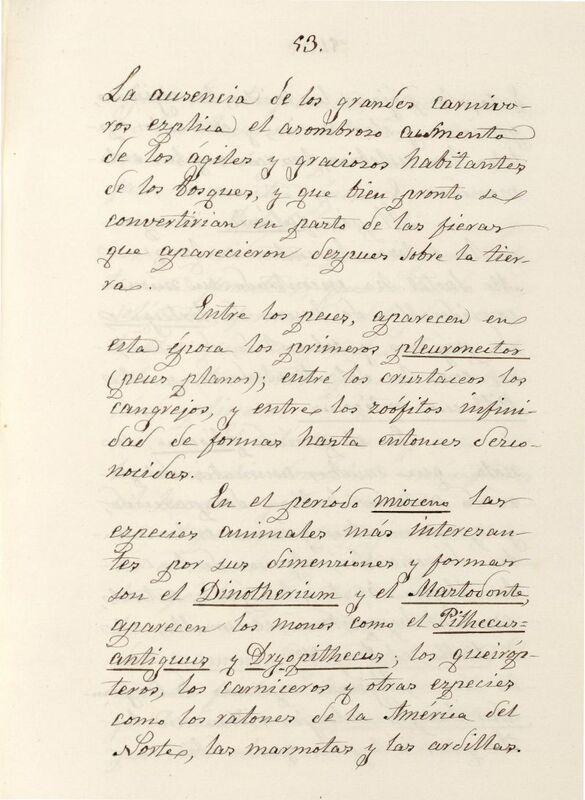 53.
La ausencia de los grandes carnivo-
ros esplica el asombroso aumento
de los ágiles y graciosos habitantes
de los bosques, y que bien pronto se
convertirian en pasto de las fieras
que aparecieron despues sobre la tier-
ra.
Entre los peces, aparecen en
esta época los primeros pleuronectos
(peces planos); entre los crustáceos los
cangrejos, y entre los zoófitos infini-
dad de formas hasta entonces desco-
nocidas.
En el período mioceno las
especies animales más interesan-
tes por sus dimensiones y formas
son el Dinotherium y el Mastodonte,
aparecen los monos como el Pithecus-
antiquus y Dryopithecus; los queiróp-
teros, los carniceros y otras especies
como los ratones de la América del
Norte, las marmotas y las ardillas.